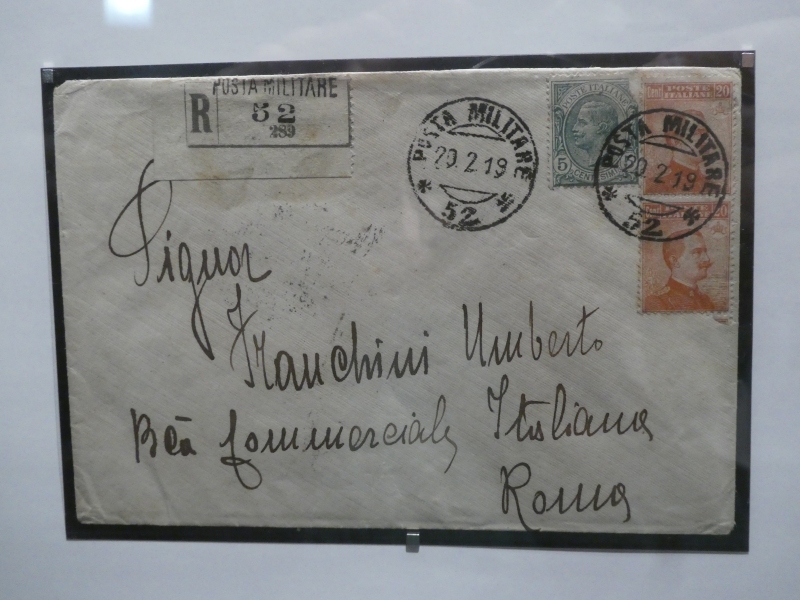 POSTA MILITARE
R
52
289
POSTA MILITARE
20.2.19
* 52 *
POSTE ITALIANE
5
CENTESIMI
Cent 20
POSTE
ITALIANE
POSTA MILITARE
20.2.19
* 52 *
Cent 20
Signor
Franchini Umberto
Bca Commerciale Italiana
Roma